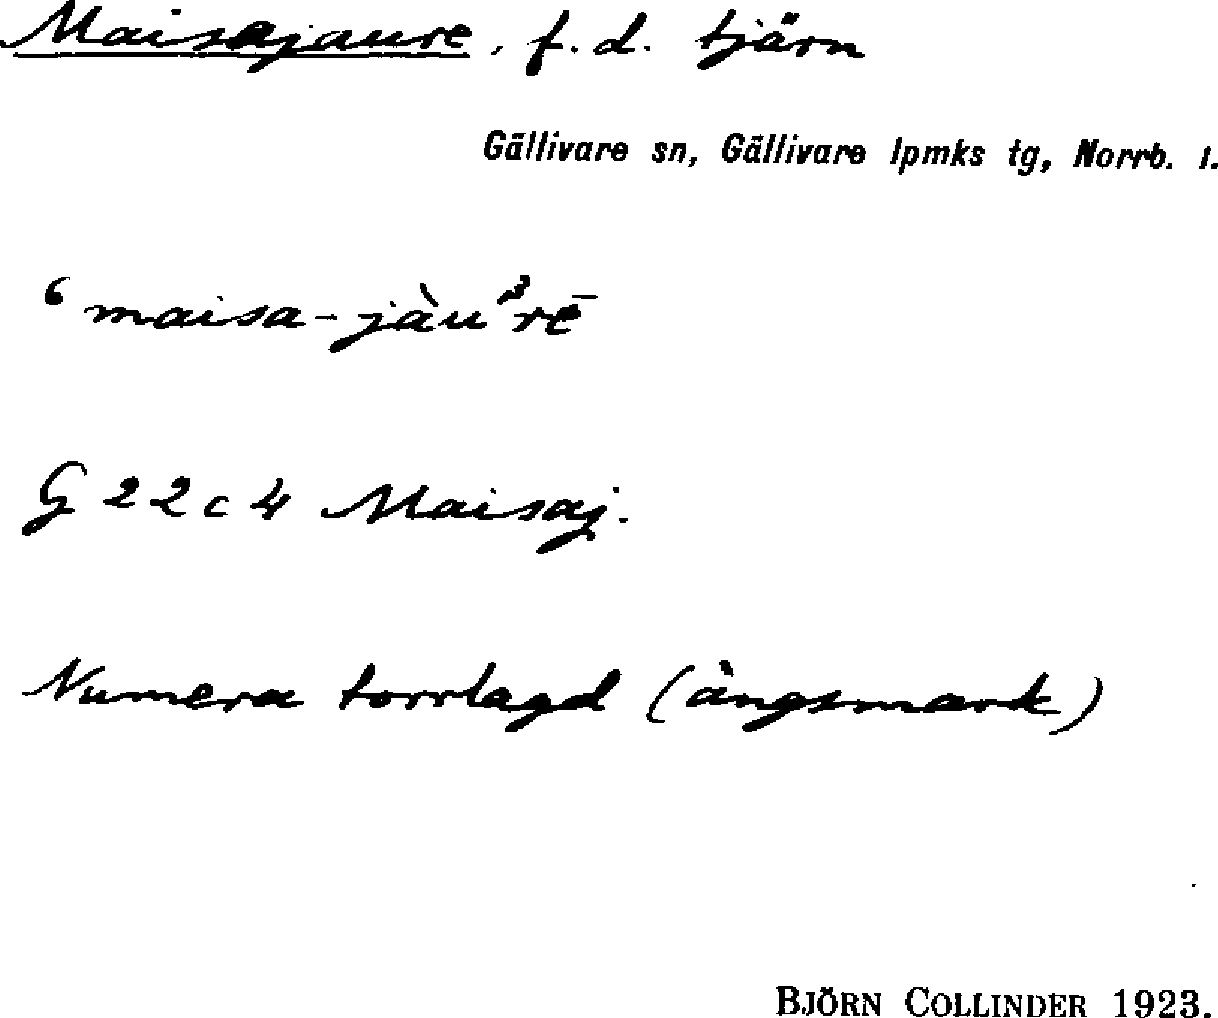 Maisajaure, f.d. tjärn
Gällivare sn, Gällivare lpmks tg, Norrb. l.
‘maisa-jàuᵝrē
G 22 c 4 Maisaj.
Numera torrlagd (ängsmark)
BJÖRN COLLINDER 1923.